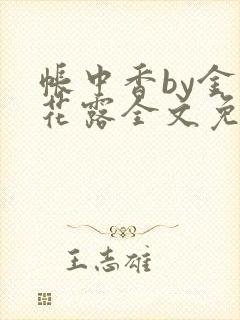 帐中香by金
花露全文免
王志雄